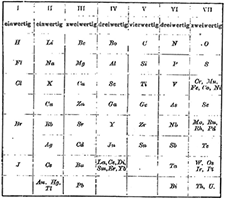 I II III IV V VI VII
einwertig einwertig zweiwertig dreiwertig vierwertig dreiwertig zweiwertig
H Li Be Bo C N O
Fl Na Mg Al Si P S
Cl K Ca Sc Ti V Cr, Mn,
Fe, Co, Ni
Cu Zn Ga Ge As Se
Br Rb Sr Y Zr Nb Mo, Ru,
Rh, Pd
Ag Cd Jn Sn Sb Te
J Cs Ba La, Ce, Di, Ta W, Os
Sm, Er, Yb Ir, Pt
Au, Hg, Pb Bi Th, U.
Tl